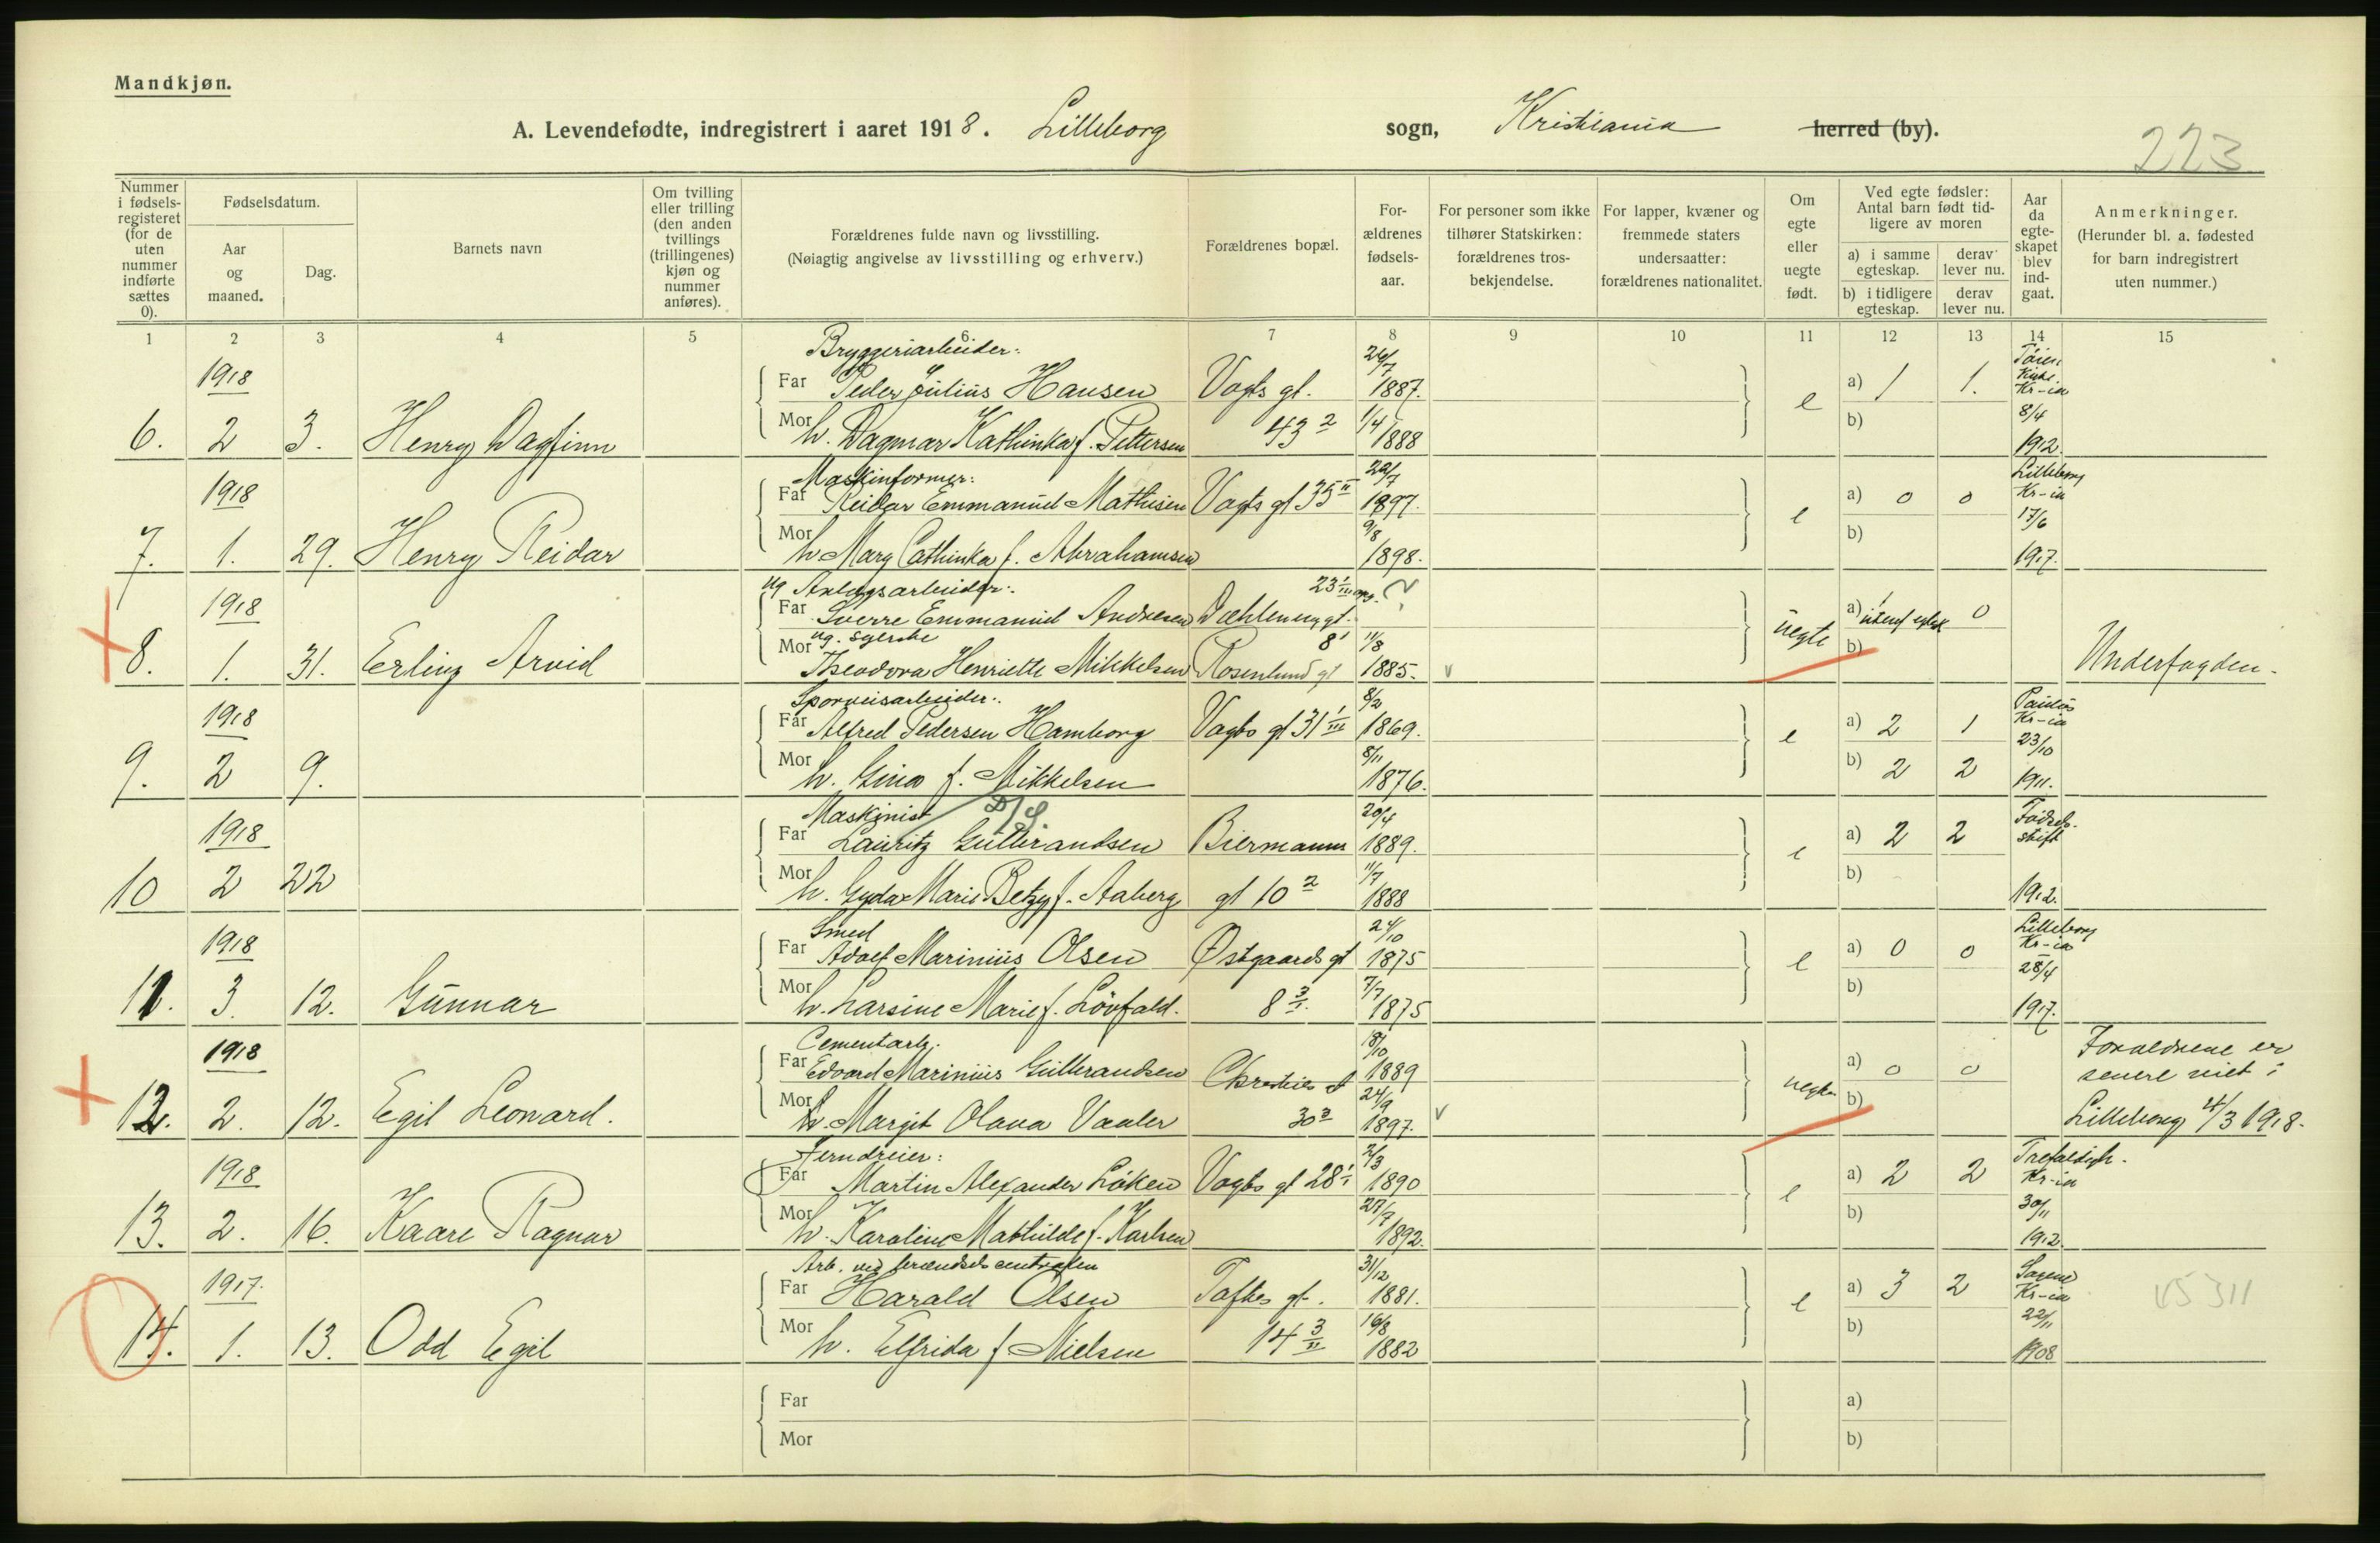 Mandkjøn.
A. Levendefødte, indregistrert i aaret 1918. Lilleborg sogn, Kristiania herred (by).
223
Nummer i fødsels-registeret (for de uten nummer indførte sættes 0).
Fødselsdatum.
Aar og maaned.
Dag.
Barnets navn
Om tvilling eller trilling (den anden tvillings (trillingenes) kjøn og nummer anføres).
Forældrenes fulde navn og livsstilling.
(Nøiagtig angivelse av livsstilling og erhverv.)
Forældrenes bopæl.
For-ældrenes fødsels-aar.
For personer som ikke tilhører Statskirken: forældrenes tros-bekjendelse.
For lapper, kvæner og fremmede staters undersaatter: forældrenes nationalitet.
Om egte eller uegte født.
Ved egte fødsler: Antal barn født tid-ligere av moren
a) i samme egteskap.
derav lever nu.
b) i tidligere egteskap.
derav lever nu.
Aar da egte-skapet blev ind-gaat.
Anmerkninger.
(Herunder bl. a. fødested for barn indregistrert uten nummer.)
1 2 3 4 5 6 7 8 9 10 11 12 13 14 15
Bryggeriarbeider:
1918 Far Peder Julius Hansen Vogts gt. 24/7 1887. e a) 1 1. Tøien Kirke Kr-ia
6. 2 3. Henry Dagfinn Mor h. Dagmar Kathinka f. Pettersen 43 2 1/4 1888 b) 8/4 1912.
Maskinformer:
1918 Far Reidar Emmanuel Mathisen Vogts gt 35 II 29/7 1897. e a) 0 0 Lilleborg Kr-ia
7. 1. 29. Henry Reidar Mor h. Marg Cathinka f. Abrahamsen 9/8 1898. b) 17/6 1917.
ug Anlægsarbeider:
1918 Far Sverre Emmanuel Andresen Dæhleneng gt. 23 uegte a) 0
ug. syerske
8. 1. 31. Erling Arvid Mor Theodora Henriette Mikkelsen Rosenlund gt 8 11/8 1885. v b) Underfogden.
Sporveisarbeider:
1918 Far Alfred Pedersen Hamborg Vogts gt 31 III 8/2 1869. e a) 2 1 Paulus Kr-ia
9. 2 9. Mor h. Gina f. Mikkelsen 8/11 1876. b) 2 2 23/10 1911.
Maskinist
1918 Far Lauritz Gulbrandsen Biermanns 20/4 1889. e a) 2 2 Fødsels-stift
10 2 22 Mor h. Gyda Marie Betzy f. Aaberg gt 10 2 11/7 1888 b) 1912.
Smed
1918 Far Adolf Marinius Olsen Østgaards gt 24/10 1875 e a) 0 0 Lilleborg Kr-ia
11. 3. 12. Gunnar Mor h. Larsine Marie f. Lövfald. 8 3/I 7/7 1875 b) 28/4 1917.
Cementarb.
1918 Far Edvard Marinius Gulbrandsen Christies gt 18/10 1889 uegte a) 0 0 Forældrene er senere viet i
12. 2. 12. Egil Leonard. Mor h. Margit Olava Vaaler 30 3 24/9 1897. v b) Lilleborg 4/3 1918.
Jerndreier:
1918 Far Martin Alexander Løken Vogts gt 28 2/3 1890 e a) 2 2 Trefoldigh. Kr-ia
13. 2. 16. Kaare Ragnar Mor h. Karoline Mathilde f. Karlsen 27/7 1892. b) 30/11 1912.
Arb. ved brændselscentralen
1917. Far Harald Olsen Toftes gt. 31/12 1881. e a) 3 2 Sagene Kr-ia 45311
14. 1. 13. Odd Egil Mor h. Elfrida f. Nielsen 14 3/II 16/8 1882 b) 22/11 1908
Far a)
Mor b)